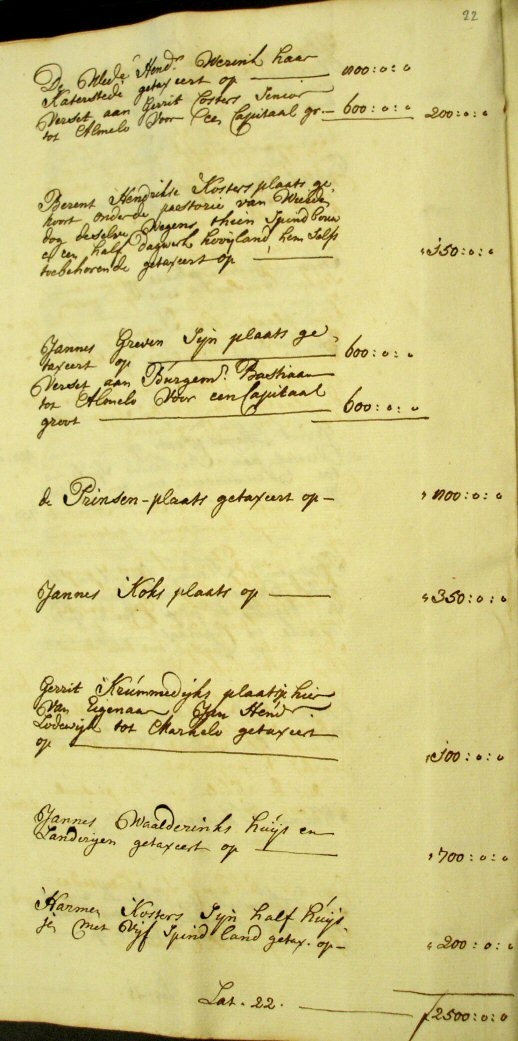 22
De Wede Hendr Werink haar
Katerstede getaxeert op — 800:0:0
Verset aan Gerrit Costers Senior
tot Almelo Voor een Capitaal gr. — 600:0:0 200:0:0
Berent Hendrikse Kosters plaats ge,
hoort onder de pastorie van Weerden
dog deselve Wegens thein Spind bouw
e een half dagwerk hooyland hem Selfs
toebehorende getaxeert op — 150:0:0
Jannes Greven Sijn plaats ge,
taxeert op — 600:0:0
Verset aan Burgemr. Bastiaan
tot Almelo Voor een Capitaal
groot — 600:0:0
de Prinsen-plaats getaxeert op — 800:0:0
Jannes Koks plaats op — 350:0:0
Gerrit Krummedijks plaatsje hier
Van Eigenaar Jan Hendr
Lodewijk tot Markelo getaxeert
op — 100:0:0
Jannes Waalderinks huijs en
Landerijen getaxeert op — 700:0:0
Harmen Kosters Sijn half huijs
je met Vijf Spind land getax. op — 200:0:0
Lat. 22. — f 2500:0:0